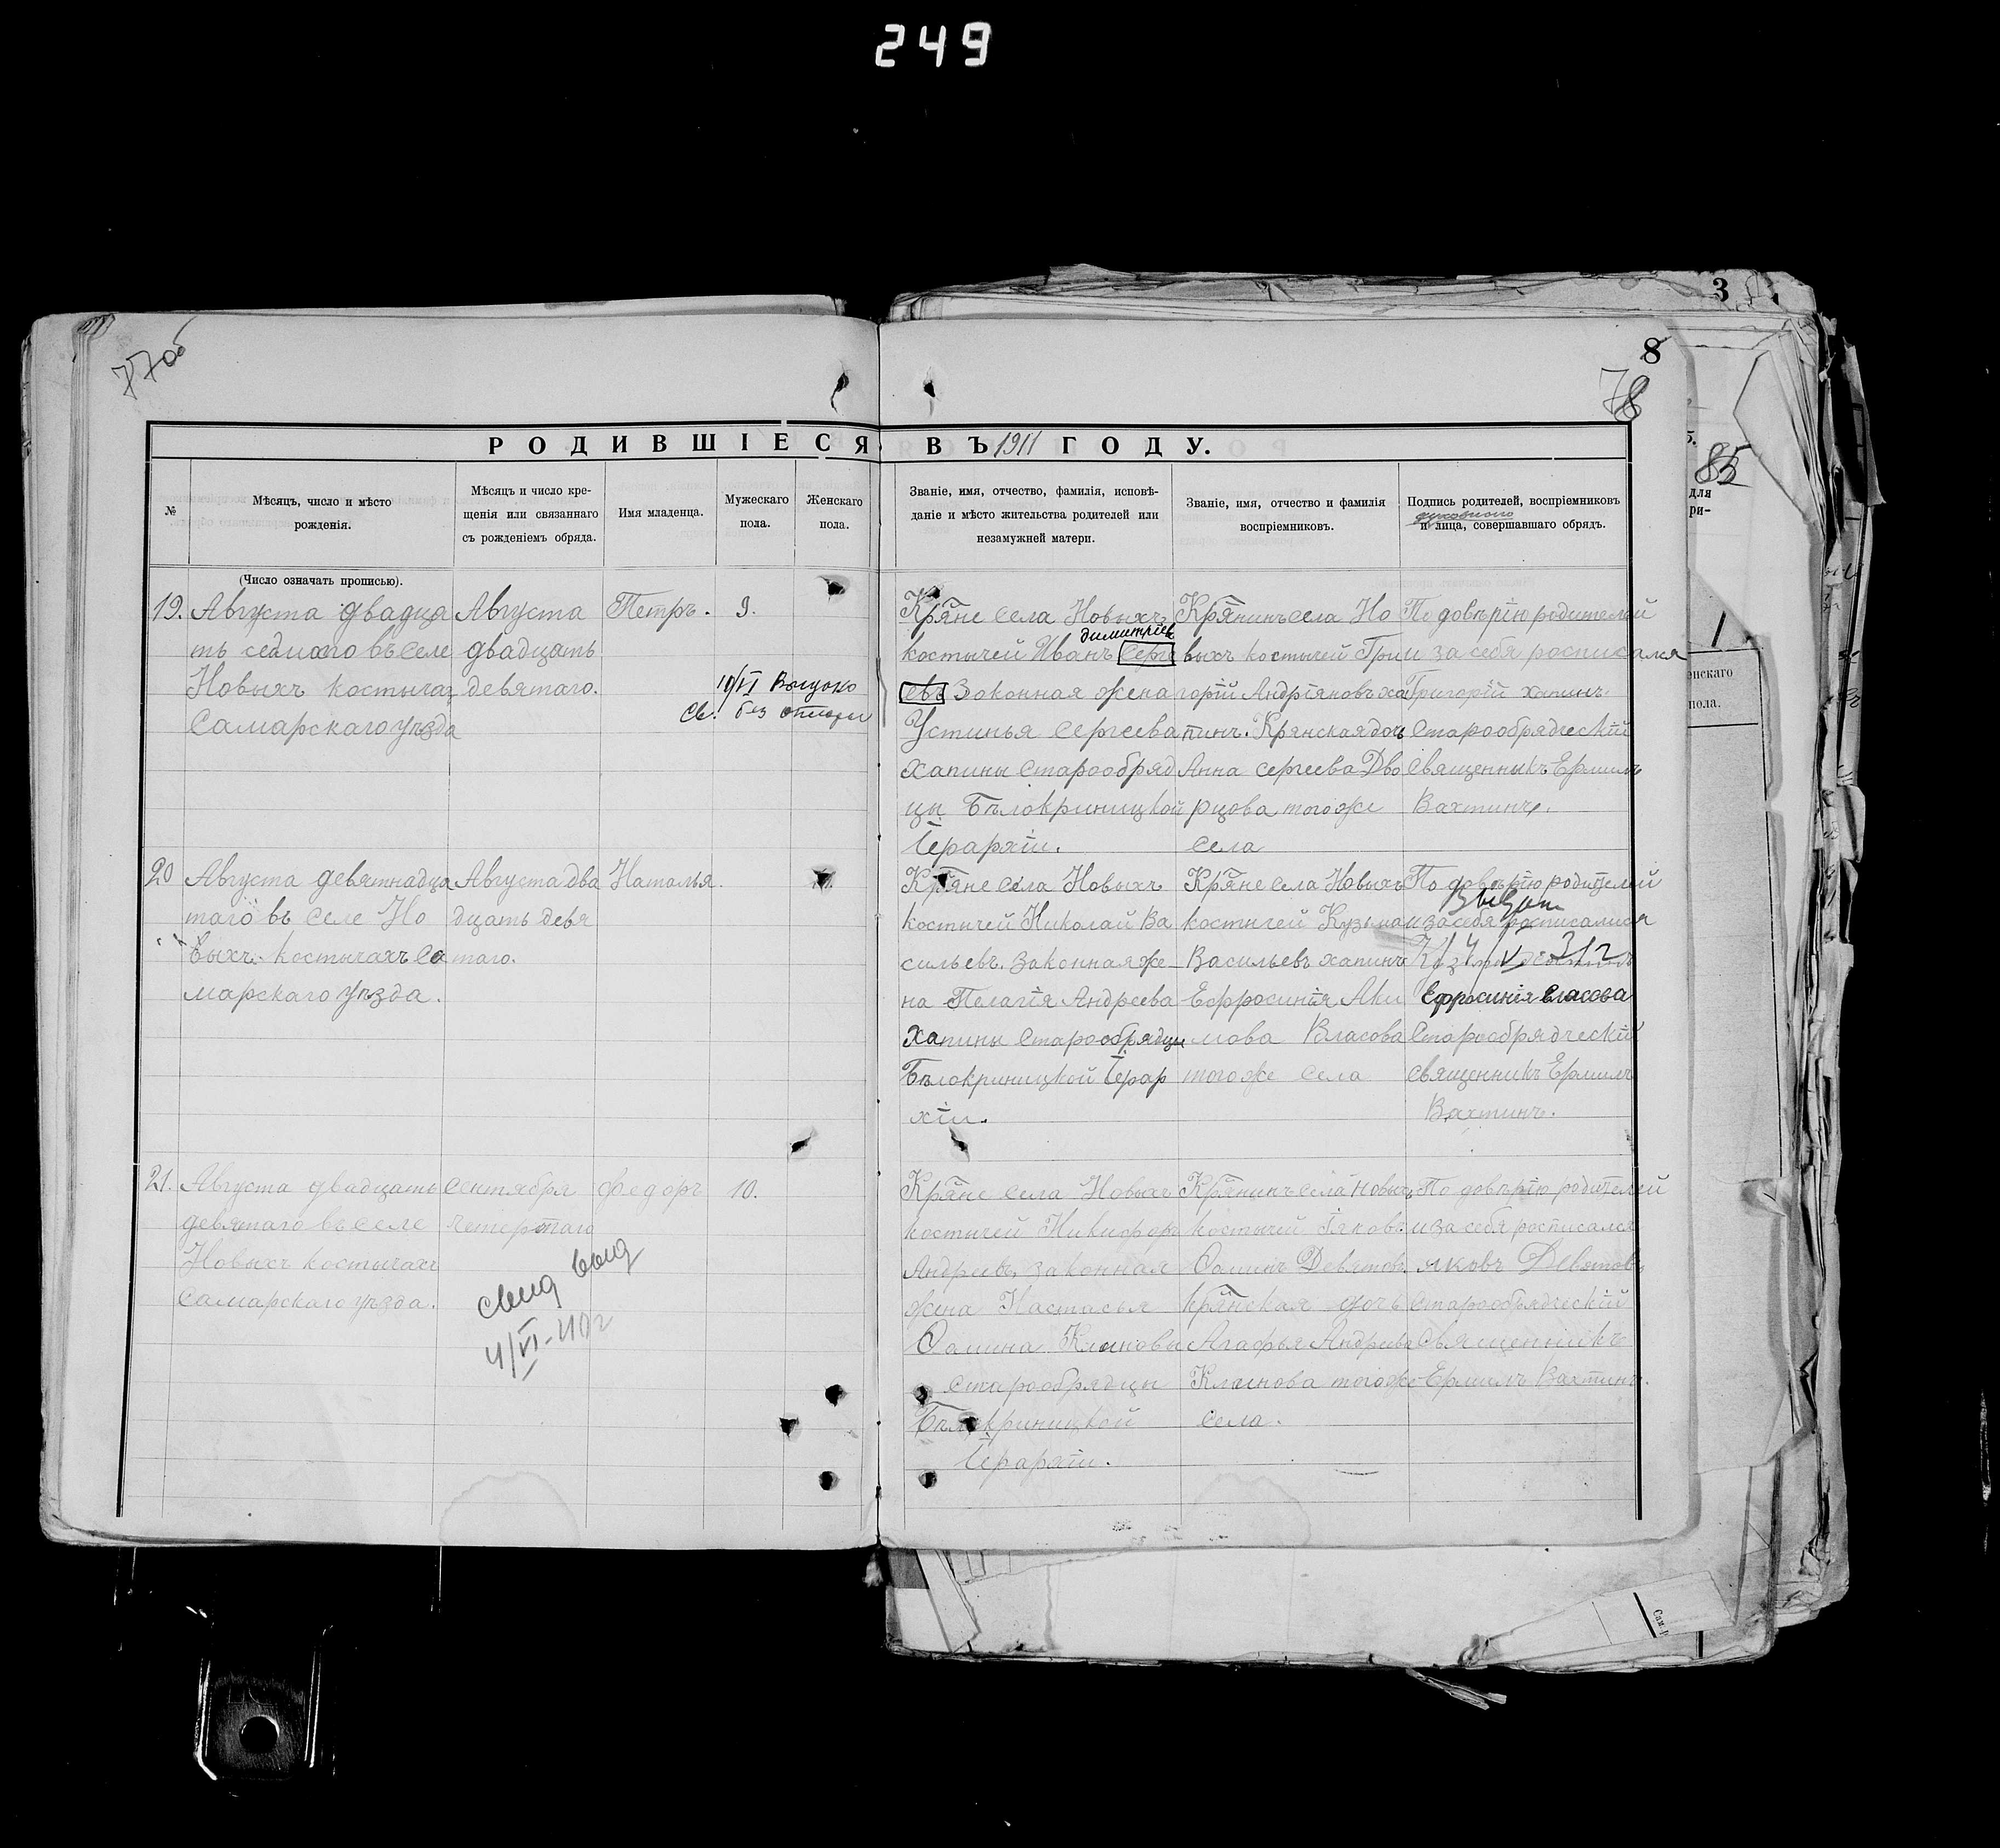 249
77об
3
8
78
85
РОДИВШІЕСЯ ВЪ 1911 ГОДУ.
№
Мѣсяцъ, число и мѣсто
рожденія.
Мѣсяцъ и число кре-
щенія или связаннаго
съ рожденіемъ обряда.
Имя младенца.
Мужескаго
пола.
Женскаго
пола.
Званіе, имя, отчество, фамилія, исповѣ-
даніе и мѣсто жительства родителей или
незамужней матери.
Званіе, имя, отчество и фамилія
воспріемниковъ.
Подпись родителей, воспріемниковъ
духовнаго
и лица, совершавшаго обрядъ.
(Число означать прописью).
19.
Августа двадца
ть седмого въ селе
Новыхъ костычах
Самарскаго уѣзда
Августа
двадцать
девятаго.
Петръ.
9.
Св.
без
Кр̃яне села Новыхъ
димитріев
костычей Иванъ Серге
евъ Законная жена
Устинья Сергеева
Хапины Старообряд
цы Бѣлокриницкой
Іерархіи.
Кр̃янинъ села Но
выхъ костычей Гри
горій Андріяновъ Ха
пинъ. Крянская дочь
Анна Сергеева Дво
рцова того же
села
По довѣрію родителей
и за себя росписался
Григорій Хапинъ
Старообрядческій
Священникъ Ермилъ
Вахтинъ.
20
Августа девятнадца
таго въ селе Но
выхъ костычахъ Са
марскаго уѣзда.
Августа два
дцать девя
таго.
Наталья.
Кр̃яне села Новыхъ
костычей Николай Ва
сильевъ. Законная же
на Пелагія Андреева
Хапины Старообрядцы
Бѣлокриницкой Іерар
хіи.
Кр̃яне села Новыхъ
костычей Кузьма
Васильевъ Хапинъ
Ефросинія Аки
мова Власова
того же села
По довѣрію родителей
и за себя росписалися
Ефросинія Власова
Старообрядческій
Священникъ Ермилъ
Вахтинъ.
21.
Августа двадцать
девятаго въ селе
Новыхъ костычахъ
Самарскаго уѣзда.
Сентября
четертаго
Федоръ
10.
свид выд
4/VI-40г
Кр̃яне села Новыхъ
костычей Никифоръ
Андреевъ, законная
жена Настасья
Фомина Клиновы
Старообрядцы
Бѣлокриницкой
Іерархіи.
Кр̃янинъ села Новыхъ
костычей Іяковъ
Фоминъ Девятовъ.
кр̃янская дочь
Агафья Андреева
Клинова того же
села.
По довѣрію родителей
и за себя росписался
яковъ Девятовъ
Старообрядческій
Священникъ
Ермилъ Вахтинъ.
для
ри-
1
енскаго
пола.